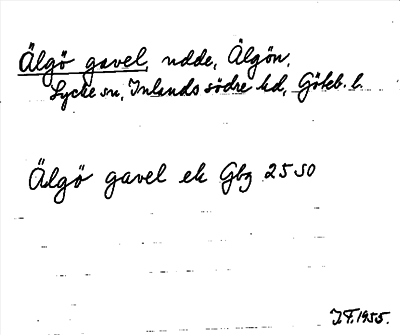 Älgö gavel, udde, Älgön,
Lycke sn, Inlands södre hd, Göteb. l.
Älgö gavel ek Gbg 25 SO
J.F. 1955.